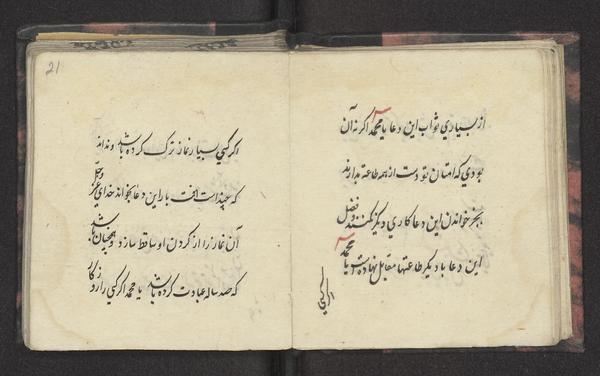 از بسیاری ثواب این دعا یا محمد اگر نه آن
بودی که امتان تو دست از همه طاعتها بدارند
بجز خواندن این دعا کاری دیگر نکنند و فضل
این دعا با دیگر طاعتها مقابل نهاده ام یا محمد
اگر کسی
21
اگر کسی بسیار نماز ترک کرده باشد و نداند
که چند است این دعا بخواند خدای عز وجل
آن نماز را از گردن او ساقط سازد و همچنان باشد
که صد ساله عبادت کرده باشد یا محمد اگر کسی را روزگار